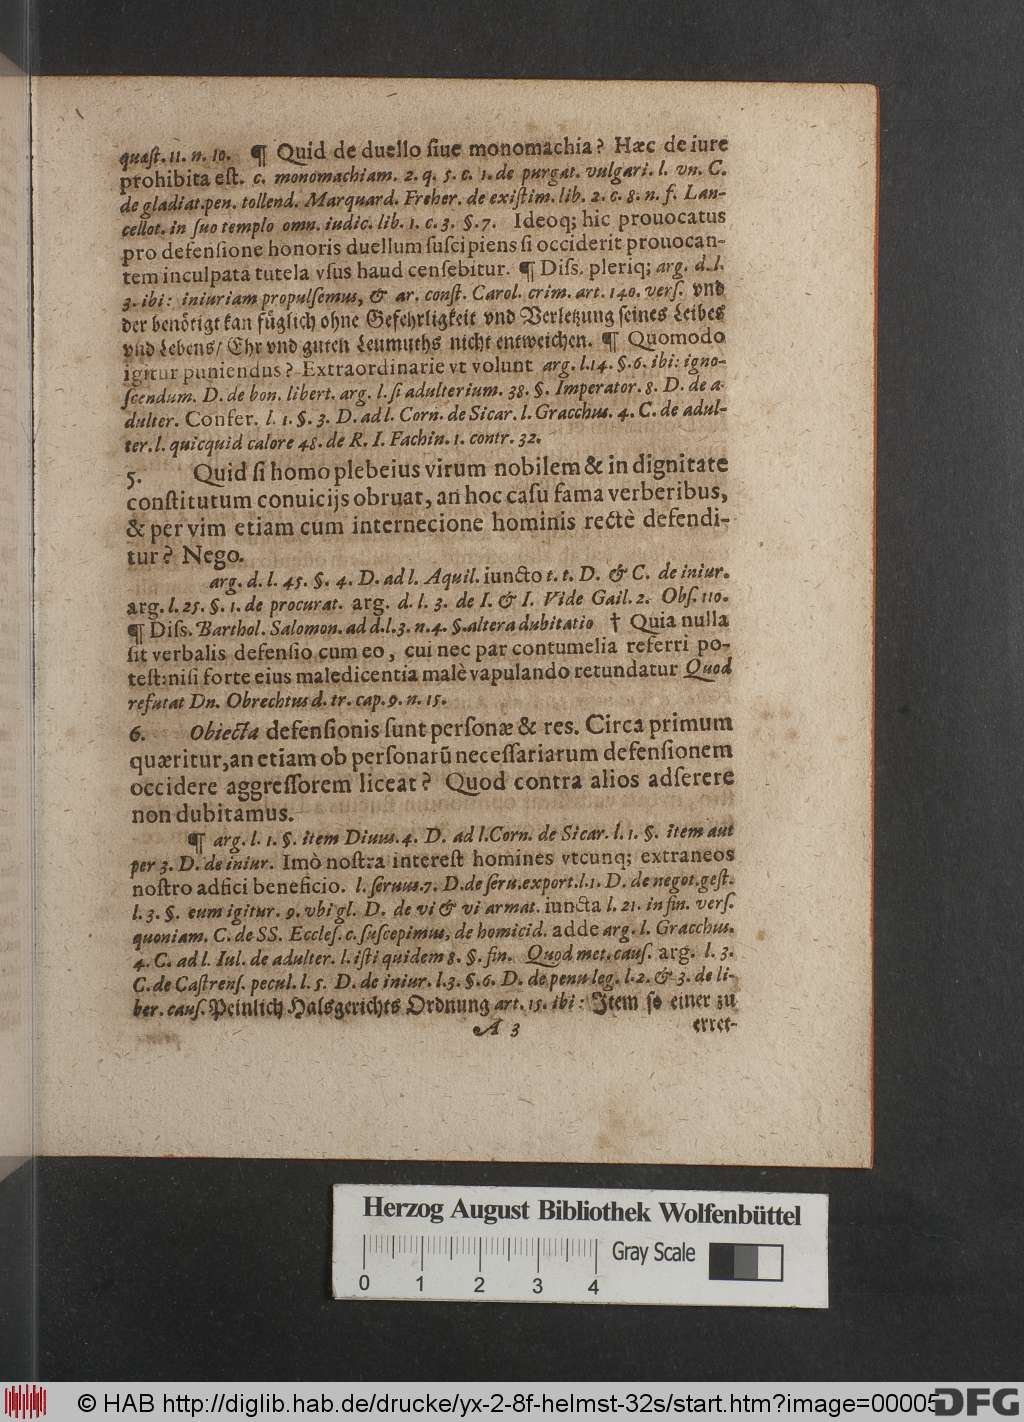 quæst. 11. n. 10. ¶ Quid de duello siue monomachia? Hæc de iure
prohibita est. c. monomachiam. 2. q. 5. c. 1. de purgat. vulgari. l. vn. C.
de gladiat. pen. tollend. Marquard. Freher. de existim. lib. 2. c. 8. n. f. Lan-
cellot. in suo templo omn. iudic. lib. 1. c. 3. §. 7. Ideoq; hic prouocatus
pro defensione honoris duellum suscipiens si occiderit prouocan-
tem inculpata tutela vsus haud censebitur. ¶ Diss. pleriq; arg. d. l.
3. ibi: iniuriam propulsemus, & ar. const. Carol. crim. art. 140. vers. vnd
der benötigt kan füglich ohne Gefehrligkeit vnd Verletzung seines Leibes
vnd Lebens/ Ehr vnd guten Leumuths nicht entweichen. ¶ Quomodo
igitur puniendus? Extraordinarie vt volunt arg. l. 14. §. 6. ibi: igno-
scendum. D. de bon. libert. arg. l. si adulterium. 38. §. Imperator. 8. D. de a-
dulter. Confer. l. 1. §. 3. D. ad l. Corn. de Sicar. l. Gracchus. 4. C. de adul-
ter. l. quicquid calore 48. de R. I. Fachin. 1. contr. 32.
5. Quid si homo plebeius virum nobilem & in dignitate
constitutum conuicijs obruat, an hoc casu fama verberibus,
& per vim etiam cum internecione hominis rectè defendi-
tur? Nego.
arg. d. l. 45. §. 4. D. ad l. Aquil. iuncto t. t. D. & C. de iniur.
arg. l. 25. §. 1. de procurat. arg. d. l. 3. de I. & I. Vide Gail. 2. Obs. 110.
¶ Diss. Barthol. Salomon. ad d. l. 3. n. 4. §. altera dubitatio † Quia nulla
sit verbalis defensio cum eo, cui nec par contumelia referri po-
test: nisi forte eius maledicentia malè vapulando retundatur Quod
refutat Dn. Obrechtus d. tr. cap. 9. n. 15.
6. Obiecta defensionis sunt personæ & res. Circa primum
quæritur, an etiam ob personarũ necessariarum defensionem
occidere aggressorem liceat? Quod contra alios adserere
non dubitamus.
¶ arg. l. 1. §. item Diuus. 4. D. ad l. Corn. de Sicar. l. 1. §. item aut
per 3. D. de iniur. Imò nostra interest homines vtcunq; extraneos
nostro adfici beneficio. l. seruus. 7. D. de seru. export. l. 1. D. de negot. gest.
l. 3. §. eum igitur. 9. vbi gl. D. de vi & vi armat. iuncta l. 21. in fin. vers.
quoniam. C. de SS. Eccles. c. suscepimus, de homicid. adde arg. l. Gracchus.
4. C. ad l. Iul. de adulter. l. isti quidem 8. §. fin. Quod met. caus. arg. l. 3.
C. de Castrens. pecul. l. 5. D. de iniur. l. 3. §. 6. D. de penu leg. l. 2. & 3. de li-
ber. caus. Peinlich Halsgerichts Ordnung art. 15. ibi: Item so einer zu
A 3 erret-
Herzog August Bibliothek Wolfenbüttel
0 1 2 3 4 Gray Scale
© HAB http://diglib.hab.de/drucke/yx-2-8f-helmst-32s/start.htm?image=00005
DFG